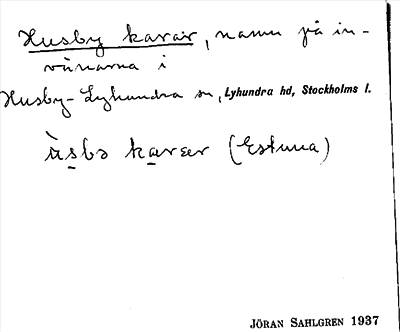 Husby karar, namn på in-
vånarna i
Husby-Lyhundra sn, Lyhundra hd, Stockholms l.
ùsbə karær (Estuna)
JÖRAN SAHLGREN 1937